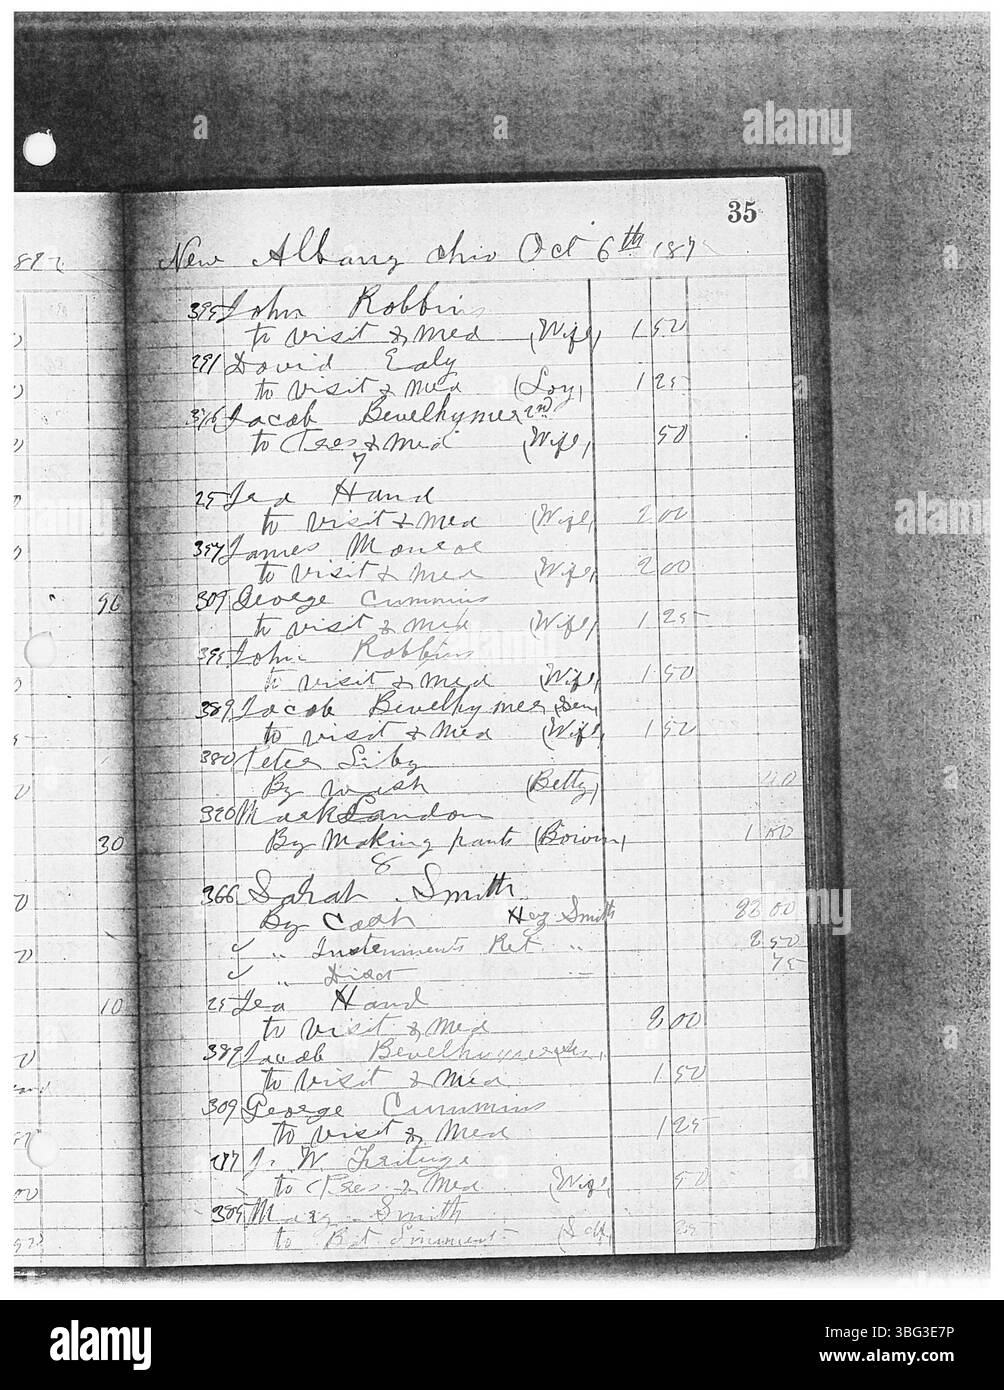 35
New Albany Ohio Oct 6th 189
395 John Robbins
to visit & Med (Wife) 1 50
291 David Ealy
to visit & Med (Loy) 1 25
376 Jacob Bevelhymer 2nd
to Tres & Med (Wife) 50
7
25 Lea Hand
to visit & Med (Wife) 2 00
357 James Monroe
to visit & Med (Wife) 2 00
309 George Cummins
to visit & Med (Wife) 1 25
395 John Robbins
to visit & Med (Wife) 1 50
389 Jacob Bevelhymer (Sen)
to visit & Med (Wife) 1 50
380 Peter Liby
By wash (Betty) 40
320 Mark Landon
By Making pants (Bowin) 1 00
8
366 Sarah Smith
By Cash Hez Smith 22 00
" Instruments Ret " 2 50
" Disct 75
25 Lea Hand
to visit & Med 2 00
389 Jacob Bevelhymer (Sen)
to visit & Med 1 50
309 George Cummins
to visit & Med 1 25
J. W.
to Tres & Med (Wife) 50
385 Mary Smith
to Bot (Self) 25
96
30
10
alamy
Image ID: 3BG3E7P
www.alamy.com